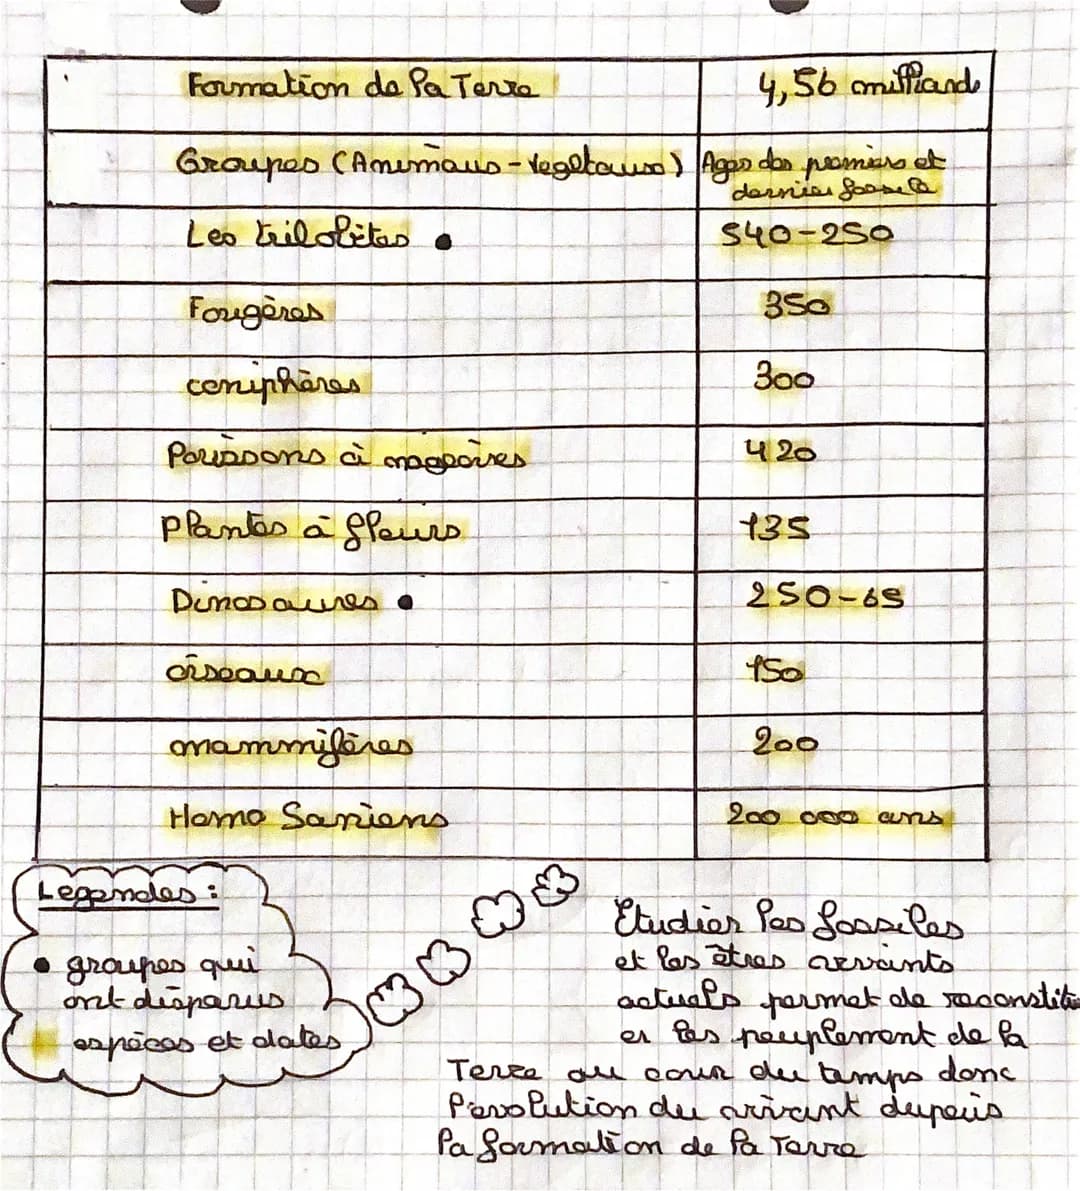 Formation de la Terre 4,56 milliards
Groupes (Animaus-Vegetaus) Ages des premiers et
dernier fossile
Les trilobites • 540-250
Fougères 350
coniphères 300
Poissons à magoires 420
Plantes à fleurs 135
Dinosaures • 250-65
oiseaux 150
mammifères 200
Homo Saniens 200 000 ans
Legendes :
• groupes qui
ont disparus
espèces et dates
Etudier les fossiles
et les êtres vivants
actuels permet de reconstitu
er les peuplement de la
Terre au cour du temps donc
l'evolution du vivant depuis
la formation de la Terre